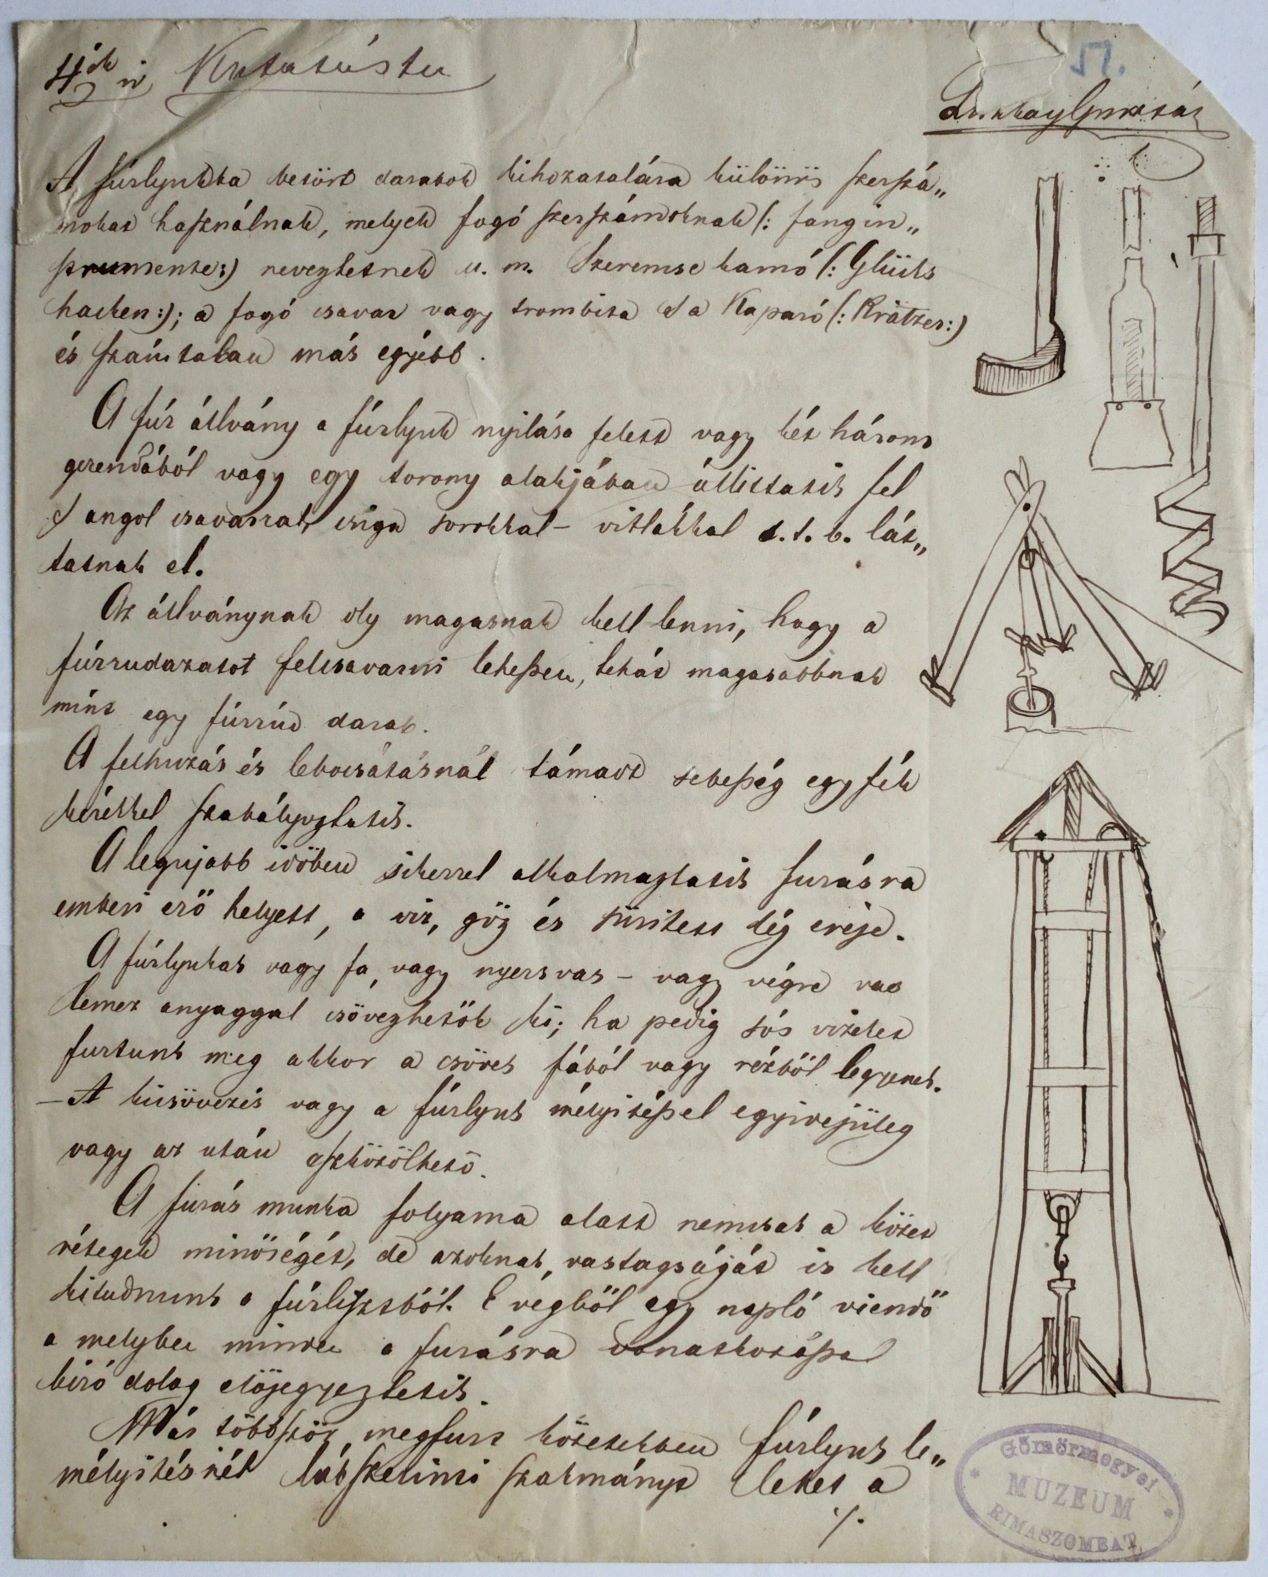 51.
4ik ív Kutatásta
A fúrlyukba betört darabok kihozatalára különös szerszá„
mokat használnak, melyek fogó szerszámoknak (: fangin„
strumente:) neveztetnek u. m. Szerencse kamó (: Glüks
hacken:); a fogó csavar vagy trombita s a Kaparó (: Krätzer:)
és számtalan más egyébb.
A fúr állvány a fúrlyuk nyilása felett vagy két három
gerendából vagy egy torony alakjában állittatik fel
s angol csavarral, csiga sorokkal – vitlákkal s. t. b. lát„
tatnak el.
Az állványnak oly magasnak kell lenni, hogy a
fúrrudazatot felcsavarni lehessen, tehát magasabbnak
mint egy fúrrúd darab.
A felhuzás és lebocsátásnál támadt sebesség egy fék
kerékkel szabályoztatik.
A legujabb időben sikerrel alkalmaztatik furásra
emberi erő helyett, a viz, gőz és süritett lég ereje.
A fúrlyukat vagy fa, vagy nyersvas – vagy végre vas
lemez anyaggal csövezhetök ki; ha pedig sós vizeket
furtunk meg akkor a csövek fából vagy rézből legyenek.
– A kicsövezés vagy a fúrlyuk mélyitéssel egyidejüleg
vagy az után eszközölhető.
A fúrás munka folyama alatt nemcsak a kőzet
rétegek minőségét, de azoknak vastagságát is kell
kitudnunk a fúrlisztből. E végből egy napló viendő
a melyben minden a furásra vonatkozással
biró dolog előjegyeztetik.
Már többször megfurt kőzetekben fúrlyuk le„
mélyitésnél látszerinti szakmányt lehet a
./.
Gömörmegyei
MUZEUM
RIMASZOMBAT